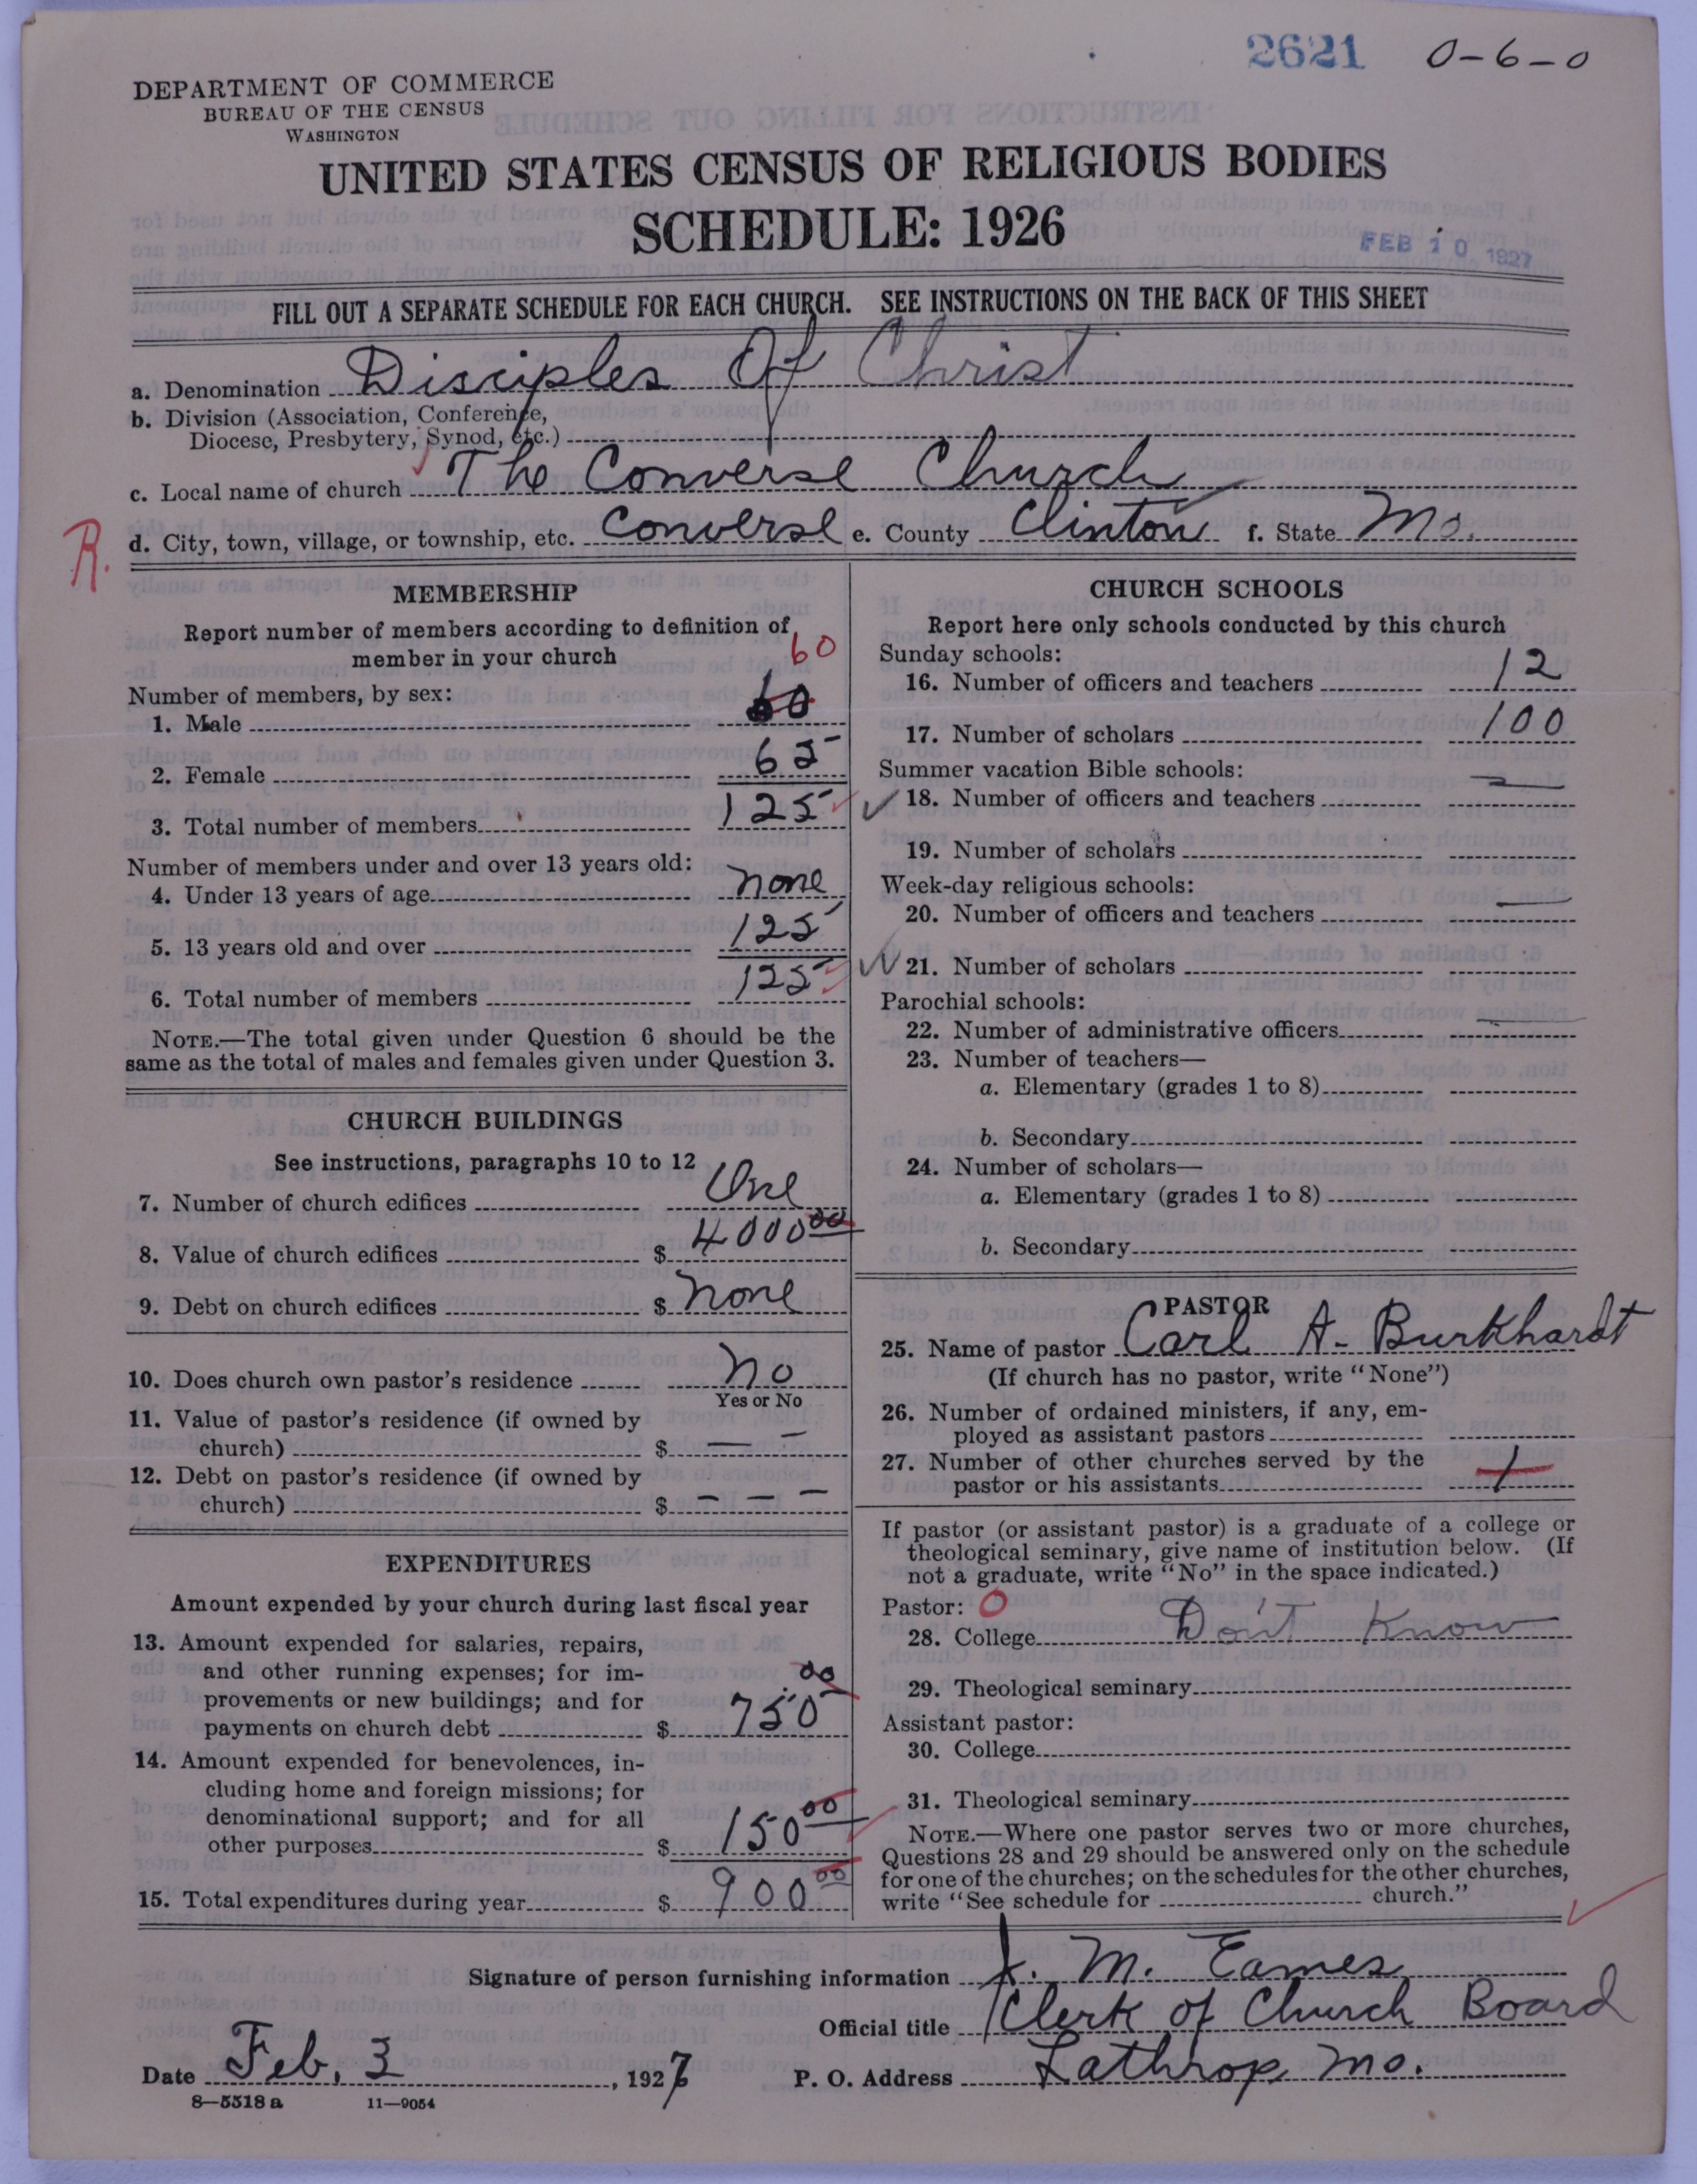 2621 0-6-0
DEPARTMENT OF COMMERCE
BUREAU OF THE CENSUS
WASHINGTON
UNITED STATES CENSUS OF RELIGIOUS BODIES
SCHEDULE: 1926
FEB 10 1927
FILL OUT A SEPARATE SCHEDULE FOR EACH CHURCH. SEE INSTRUCTIONS ON THE BACK OF THIS SHEET
a. Denomination Disciples Of Christ
b. Division (Association, Conference,
Diocese, Presbytery, Synod, etc.)
c. Local name of church The Converse Church
R. d. City, town, village, or township, etc. Converse e. County Clinton f. State Mo.
MEMBERSHIP
Report number of members according to definition of
member in your church 60
Number of members, by sex:
1. Male 60
2. Female 65
3. Total number of members 125
Number of members under and over 13 years old:
4. Under 13 years of age none
5. 13 years old and over 125
6. Total number of members 125
NOTE.—The total given under Question 6 should be the
same as the total of males and females given under Question 3.
CHURCH BUILDINGS
See instructions, paragraphs 10 to 12
7. Number of church edifices One
8. Value of church edifices $ 4000 00
9. Debt on church edifices $ none
10. Does church own pastor's residence No
Yes or No
11. Value of pastor's residence (if owned by
church) $ — –
12. Debt on pastor's residence (if owned by
church) $ – – –
EXPENDITURES
Amount expended by your church during last fiscal year
13. Amount expended for salaries, repairs,
and other running expenses; for im-
provements or new buildings; and for
payments on church debt $ 750 00
14. Amount expended for benevolences, in-
cluding home and foreign missions; for
denominational support; and for all
other purposes $ 150 00
15. Total expenditures during year $ 900 00
CHURCH SCHOOLS
Report here only schools conducted by this church
Sunday schools:
16. Number of officers and teachers 12
17. Number of scholars 100
Summer vacation Bible schools:
18. Number of officers and teachers —
19. Number of scholars
Week-day religious schools:
20. Number of officers and teachers —
21. Number of scholars
Parochial schools:
22. Number of administrative officers —
23. Number of teachers—
a. Elementary (grades 1 to 8)
b. Secondary
24. Number of scholars—
a. Elementary (grades 1 to 8)
b. Secondary
PASTOR
25. Name of pastor Carl A. Burkhardt
(If church has no pastor, write "None")
26. Number of ordained ministers, if any, em-
ployed as assistant pastors
27. Number of other churches served by the
pastor or his assistants 1
If pastor (or assistant pastor) is a graduate of a college or
theological seminary, give name of institution below. (If
not a graduate, write "No" in the space indicated.)
Pastor: 0
28. College Don't Know
29. Theological seminary
Assistant pastor:
30. College
31. Theological seminary
NOTE.—Where one pastor serves two or more churches,
Questions 28 and 29 should be answered only on the schedule
for one of the churches; on the schedules for the other churches,
write "See schedule for church."
Signature of person furnishing information M. Eames
Official title Clerk of Church Board
Date Feb. 3, 1927 P. O. Address Lathrop Mo.
8—5518 a 11—9054